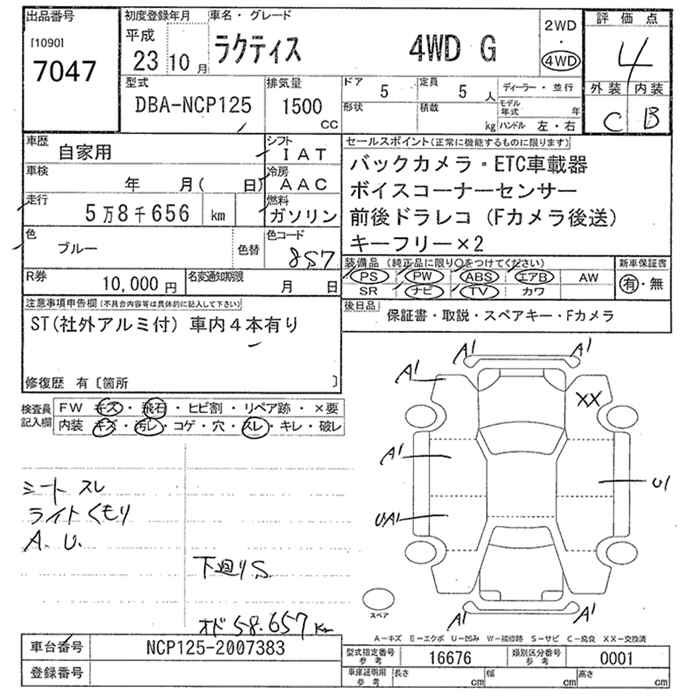 出品番号
[1090]
7047
初度登録年月
平成
23年10月
車名・グレード
ラクティス 4WD G
2WD
・
4WD
評価点
4
外装 内装
C B
型式
DBA-NCP125
排気量
1500
cc
ドア 5
形状
定員 5人
積載 kg
ディーラー・並行
モデル年式 年
ハンドル 左・右
車歴
自家用
シフト
IAT
車検
年 月( 日)
冷房
AAC
走行
5万8千656 km
燃料
ガソリン
色
ブルー
色替
色コード
8S7
R券
10,000円
名変通知期限
月 日
セールスポイント(正常に機能するものに限ります)
バックカメラ・ETC車載器
ボイスコーナーセンサー
前後ドラレコ(Fカメラ後送)
キーフリー×2
装備品(純正品に限り○をつけてください)
PS PW ABS エアB AW
SR ナビ TV カワ
新車保証書
有・無
後日品
保証書・取説・スペアキー・Fカメラ
注意事項申告欄(不具合内容等は具体的に記入して下さい)
ST(社外アルミ付)車内4本有り
修復歴 有[箇所 ]
検査員
記入欄
FW キズ・飛石・ヒビ割・リペア跡・×要
内装 キズ・汚レ・コゲ・穴・スレ・キレ・破レ
シート スレ
ライトくもり
A. U.
下廻りS.
オド 58.657Km
A1 A1
A1
XX
A1
U1
UA1
A1 A1
スペア
A−キズ E−エクボ U−凹み W−補修跡 S−サビ C−腐食 XX−交換済
車台番号
NCP125-2007383
登録番号
型式指定番号
参考
16676
類別区分番号
参考
0001
車庫証明用
参考
長さ cm
幅 cm
高さ cm